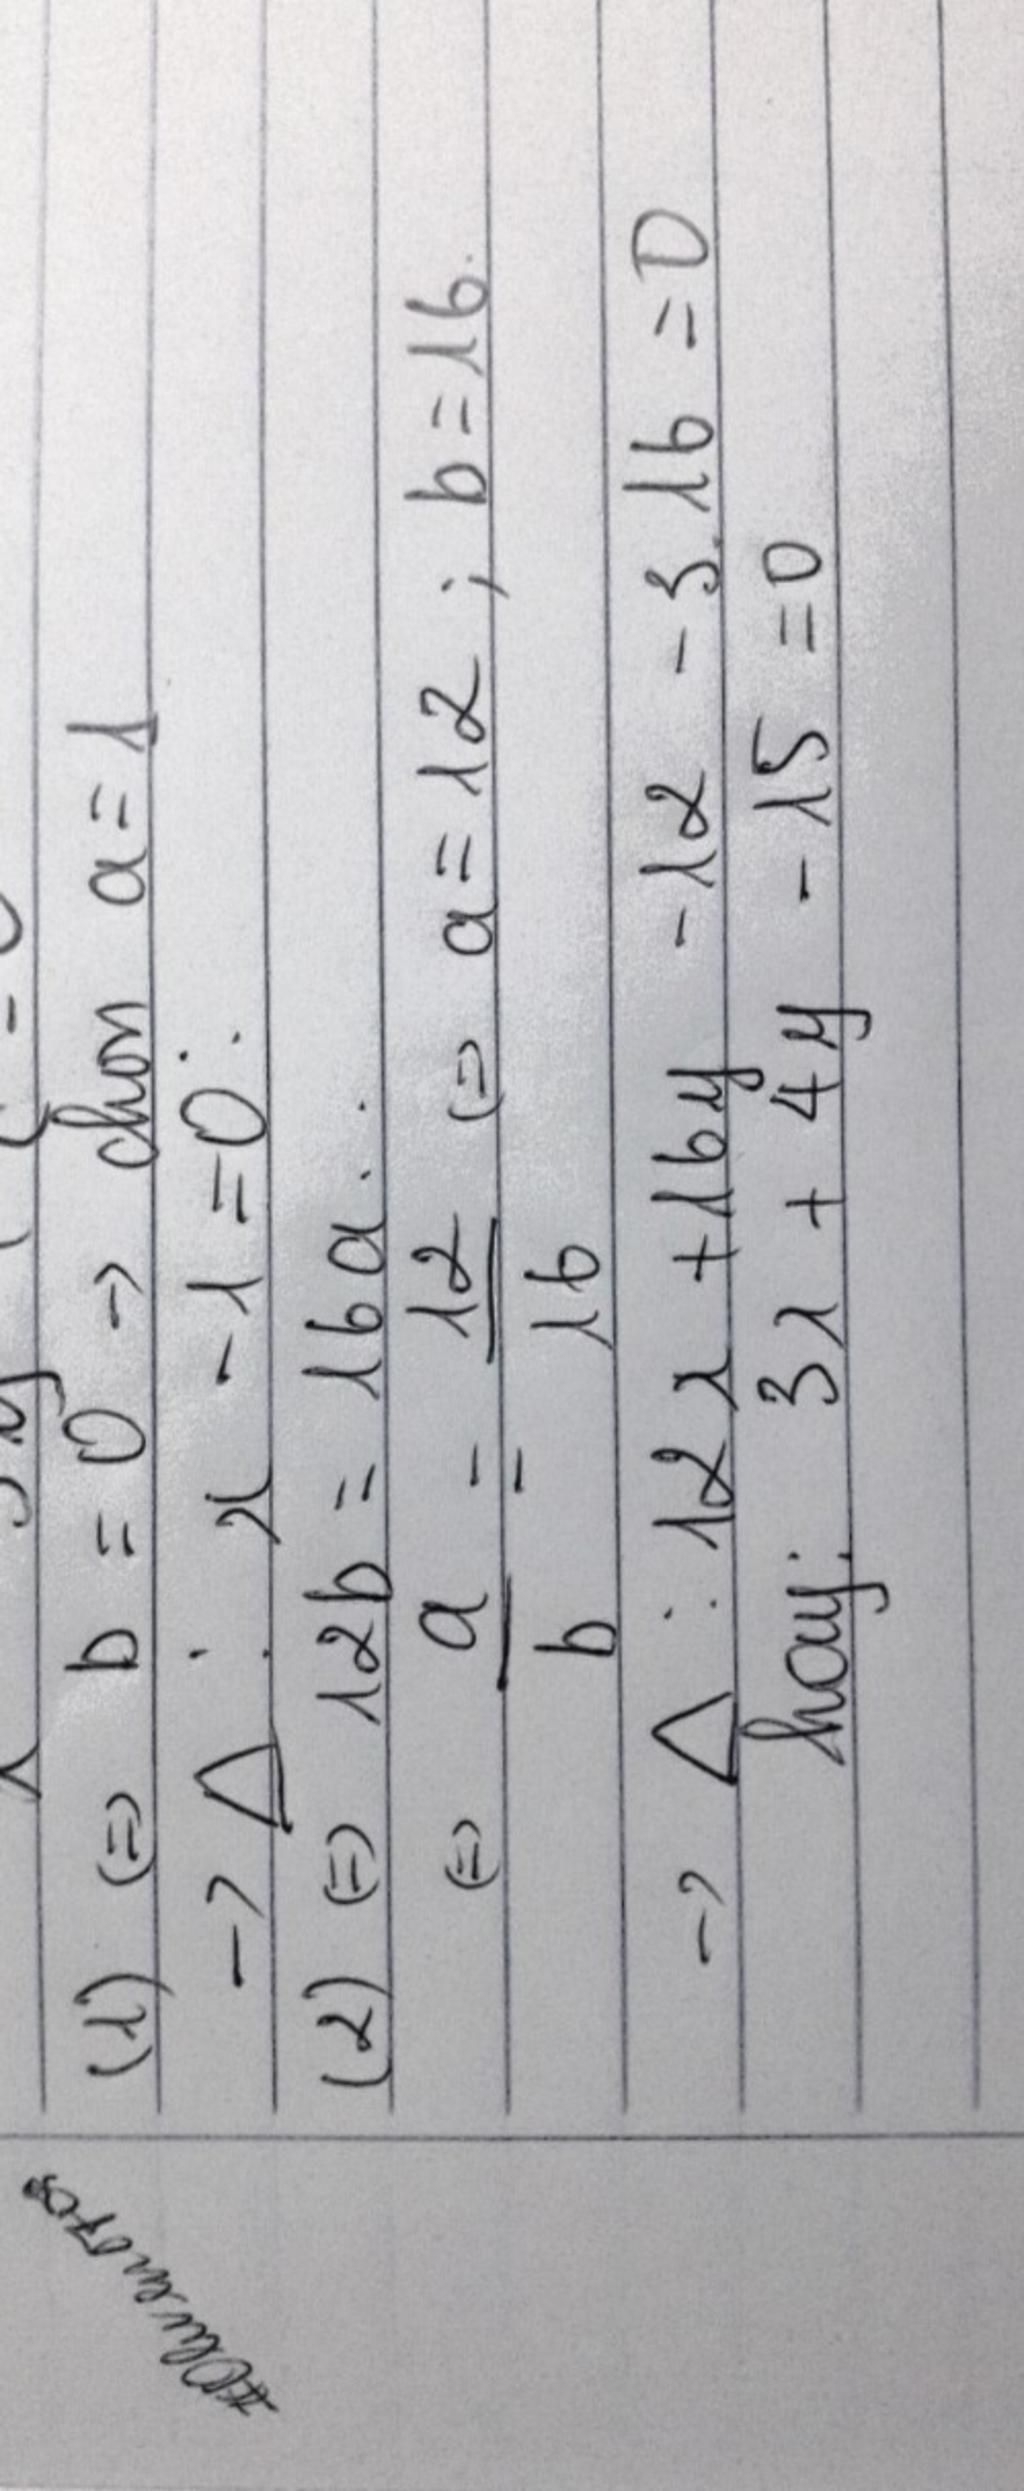 (1) (=) b = 0 → chọn a = 1
→ Δ : x - 1 = 0.
(2) (=) 12b = 16a.
(=) a/b = 12/16 (=) a = 12 ; b = 16.
→ Δ : 12x + 16y - 12 - 3.16 = 0
hay: 3x + 4y - 15 = 0